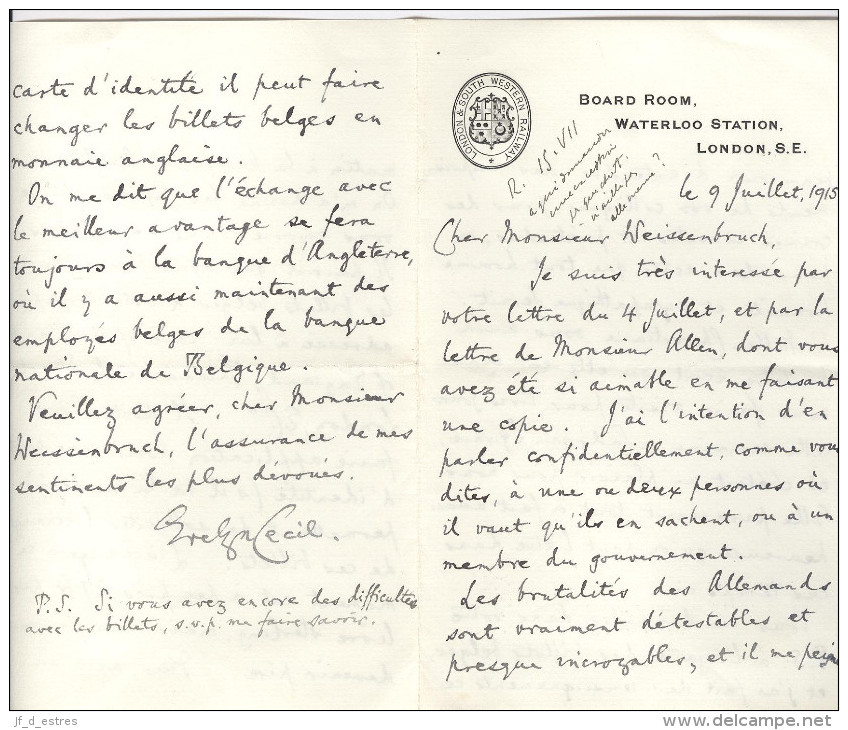 LONDON & SOUTH WESTERN RAILWAY
BOARD ROOM,
WATERLOO STATION,
LONDON, S.E.
R. 15.VII
le 9 Juillet, 1915
Cher Monsieur Weissenbruch,
Je suis très interessée par
votre lettre du 4 Juillet, et par la
lettre de Monsieur Allen, dont vous
avez été si aimable en me faisant
une copie. J'ai l'intention d'en
parler confidentiellement, comme vous
dites, à une ou deux personnes où
il vaut qu'ils en sachent, ou à un
membre du gouvernement.
Les brutalités des Allemands
sont vraiment détestables et
presque incroyables, et il me peine
carte d'identité il peut faire
changer les billets belges en
monnaie anglaise.
On me dit que l'échange avec
le meilleur avantage se fera
toujours à la banque d'Angleterre,
où il y a aussi maintenant des
employés belges de la banque
nationale de Belgique.
Veuillez agréer, cher Monsieur
Weissenbruch, l'assurance de mes
sentiments les plus dévoués.
Evelyn Cecil.
P.S. Si vous avez encore des difficultés
avec les billets, s.v.p. me faire savoir.
jf_d_estres
www.delcampe.net